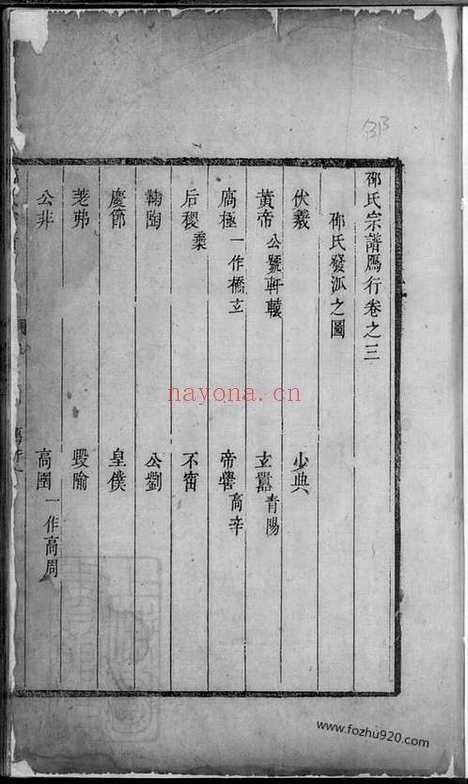 邵
邵氏宗譜鴈行卷之三
邵氏發派之圖
伏羲 少典
黃帝 公號軒轅 玄囂 青陽
高極 一作橋玄 帝嚳 高辛
后稷 棄 不窋
鞠陶 公劉
慶節 皇僕
差弗 毁隃
公非 高圉 一作高周
nayona.cn
www.fozhu920.com